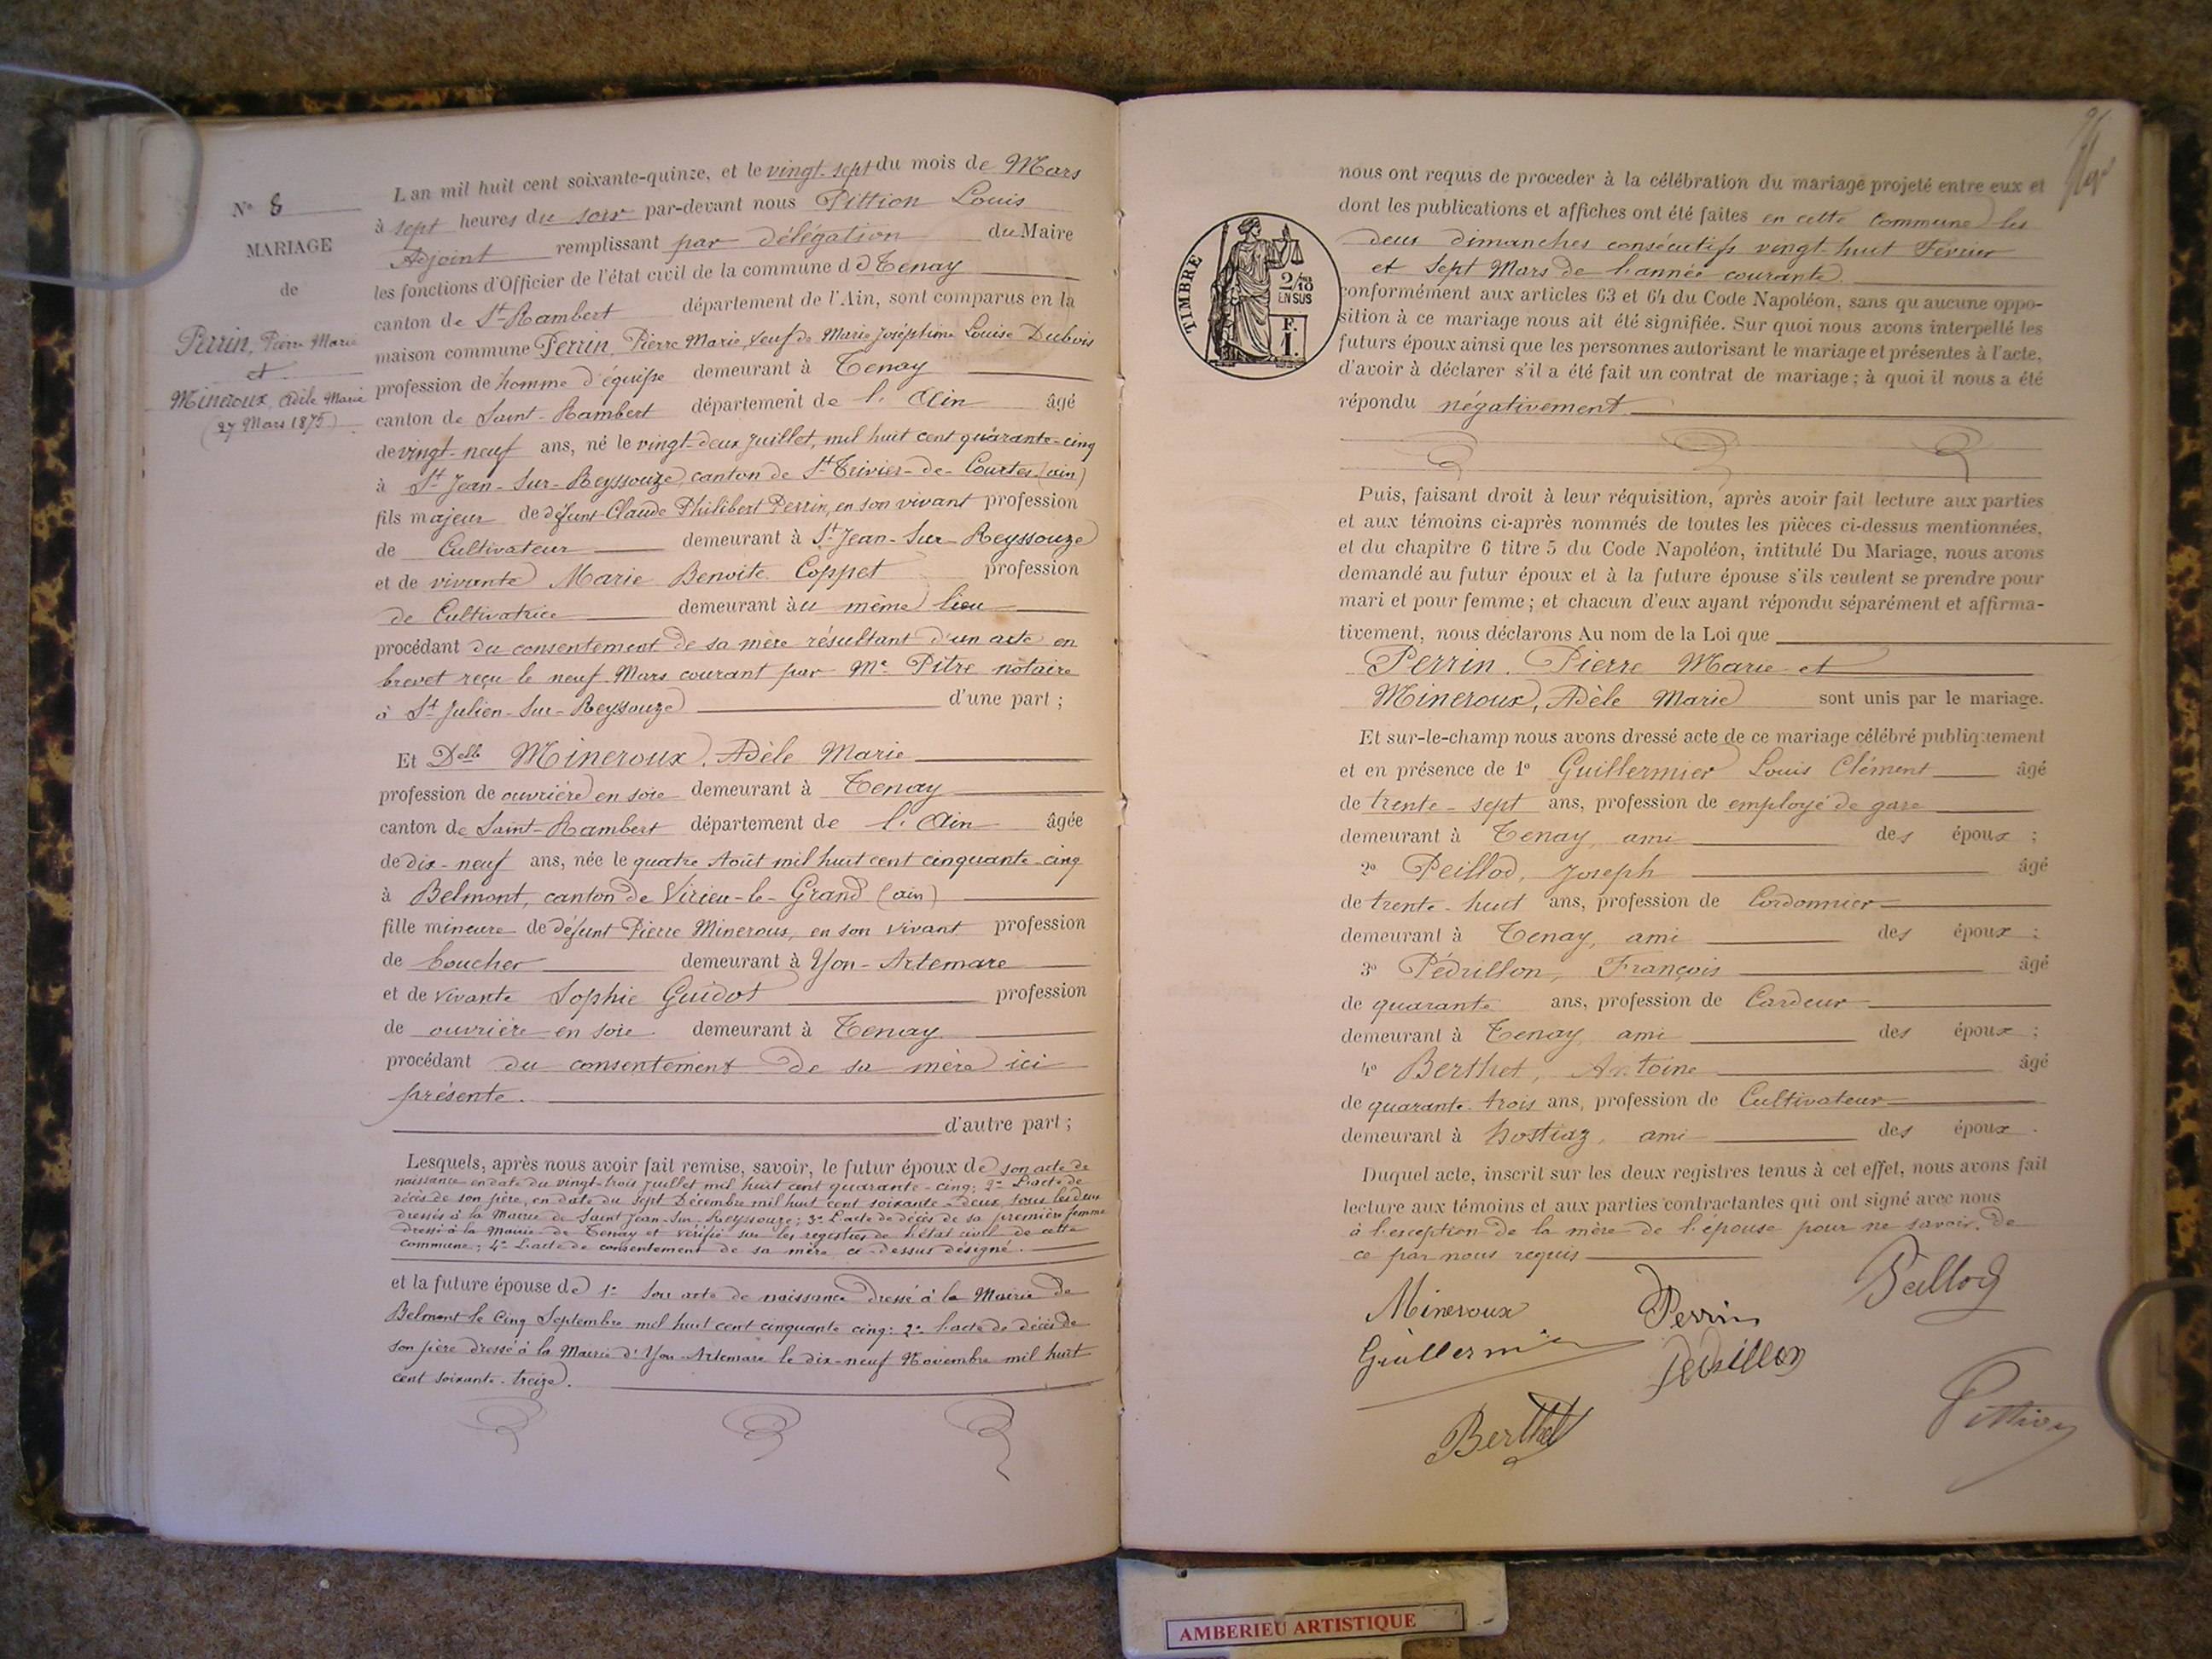 N° 8
MARIAGE
de
Perrin, Pierre Marie
et
Mineroux, Adèle Marie
(27 Mars 1875)
L'an mil huit cent soixante-quinze, et le vingt-sept du mois de Mars
à sept heures du soir par-devant nous Pittion Louis
Adjoint remplissant par délégation du Maire
les fonctions d'Officier de l'état civil de la commune d de Tenay
canton de St-Rambert département de l'Ain, sont comparus en la
maison commune Perrin, Pierre Marie, veuf de Marie Joséphine Louise Dubois
profession de homme d'équipe demeurant à Tenay
canton de Saint-Rambert département de l'Ain âgé
de vingt-neuf ans, né le vingt-deux juillet, mil huit cent quarante-cinq
à St Jean-sur-Reyssouze, canton de St Trivier-de-Courtes (ain)
fils majeur de défunt Claude Philibert Perrin, en son vivant profession
de Cultivateur demeurant à St Jean-sur-Reyssouze
et de vivante Marie Benoite Coppet profession
de Cultivatrice demeurant au même lieu
procédant du consentement de sa mère résultant d'un acte en
brevet reçu le neuf Mars courant par Me Pitre notaire
à St Julien-sur-Reyssouze d'une part ;
Et Delle Mineroux, Adèle Marie
profession de ouvrière en soie demeurant à Tenay
canton de Saint-Rambert département de l'Ain âgée
de dix-neuf ans, née le quatre Août mil huit cent cinquante-cinq
à Belmont, canton de Virieu-le-Grand (ain)
fille mineure de défunt Pierre Mineroux, en son vivant profession
de boucher demeurant à Yon-Artemare
et de vivante Sophie Guidot profession
de ouvrière en soie demeurant à Tenay
procédant du consentement de sa mère ici
présente.
d'autre part ;
Lesquels, après nous avoir fait remise, savoir, le futur époux de son acte de
naissance en date du vingt-trois juillet mil huit cent quarante-cinq; 2° L'acte de
décès de son père, en date du sept Décembre mil huit cent soixante-deux, tous les deux
dressés à la Mairie de Saint Jean-sur-Reyssouze; 3° L'acte de décès de sa première femme
dressé à la Mairie de Tenay et vérifié sur les registres de l'état civil de cette
commune; 4° L'acte de consentement de sa mère ci-dessus désigné.
et la future épouse de 1° Son acte de naissance dressé à la Mairie de
Belmont le Cinq Septembre mil huit cent cinquante cinq; 2° l'acte de décès de
son père dressé à la Mairie d'Yon-Artemare le dix-neuf Novembre mil huit
cent soixante-treize.
nous ont requis de proceder à la célébration du mariage projeté entre eux et
dont les publications et affiches ont été faites en cette Commune les
deux dimanches consécutifs vingt-huit Février
et Sept Mars de l'année courante.
conformément aux articles 63 et 64 du Code Napoléon, sans qu'aucune oppo-
sition à ce mariage nous ait été signifiée. Sur quoi nous avons interpellé les
futurs époux ainsi que les personnes autorisant le mariage et présentes à l'acte,
d'avoir à déclarer s'il a été fait un contrat de mariage ; à quoi il nous a été
répondu négativement
TIMBRE
2/10
EN SUS
F.
1.
Puis, faisant droit à leur réquisition, après avoir fait lecture aux parties
et aux témoins ci-après nommés de toutes les pièces ci-dessus mentionnées,
et du chapitre 6 titre 5 du Code Napoléon, intitulé Du Mariage, nous avons
demandé au futur époux et à la future épouse s'ils veulent se prendre pour
mari et pour femme ; et chacun d'eux ayant répondu séparément et affirma-
tivement, nous déclarons Au nom de la Loi que
Perrin. Pierre Marie et
Mineroux, Adèle Marie sont unis par le mariage.
Et sur-le-champ nous avons dressé acte de ce mariage célébré publiquement
et en présence de 1° Guillermier Louis Clément âgé
de trente-sept ans, profession de employé de gare
demeurant à Tenay, ami des époux ;
2° Peillod, Joseph âgé
de trente-huit ans, profession de Cordonnier
demeurant à Tenay, ami des époux ;
3° Pédrillon, François âgé
de quarante ans, profession de Cardeur
demeurant à Tenay ami des époux ;
4° Berthet, Antoine âgé
de quarante-trois ans, profession de Cultivateur
demeurant à hostiaz, ami des époux.
Duquel acte, inscrit sur les deux registres tenus à cet effet, nous avons fait
lecture aux témoins et aux parties contractantes qui ont signé avec nous
à l'exception de la mère de l'épouse pour ne savoir, de
ce par nous requis
Mineroux Perrin Peillod
Guillermier Pédrillon
Berthet Pittion
AMBERIEU ARTISTIQUE